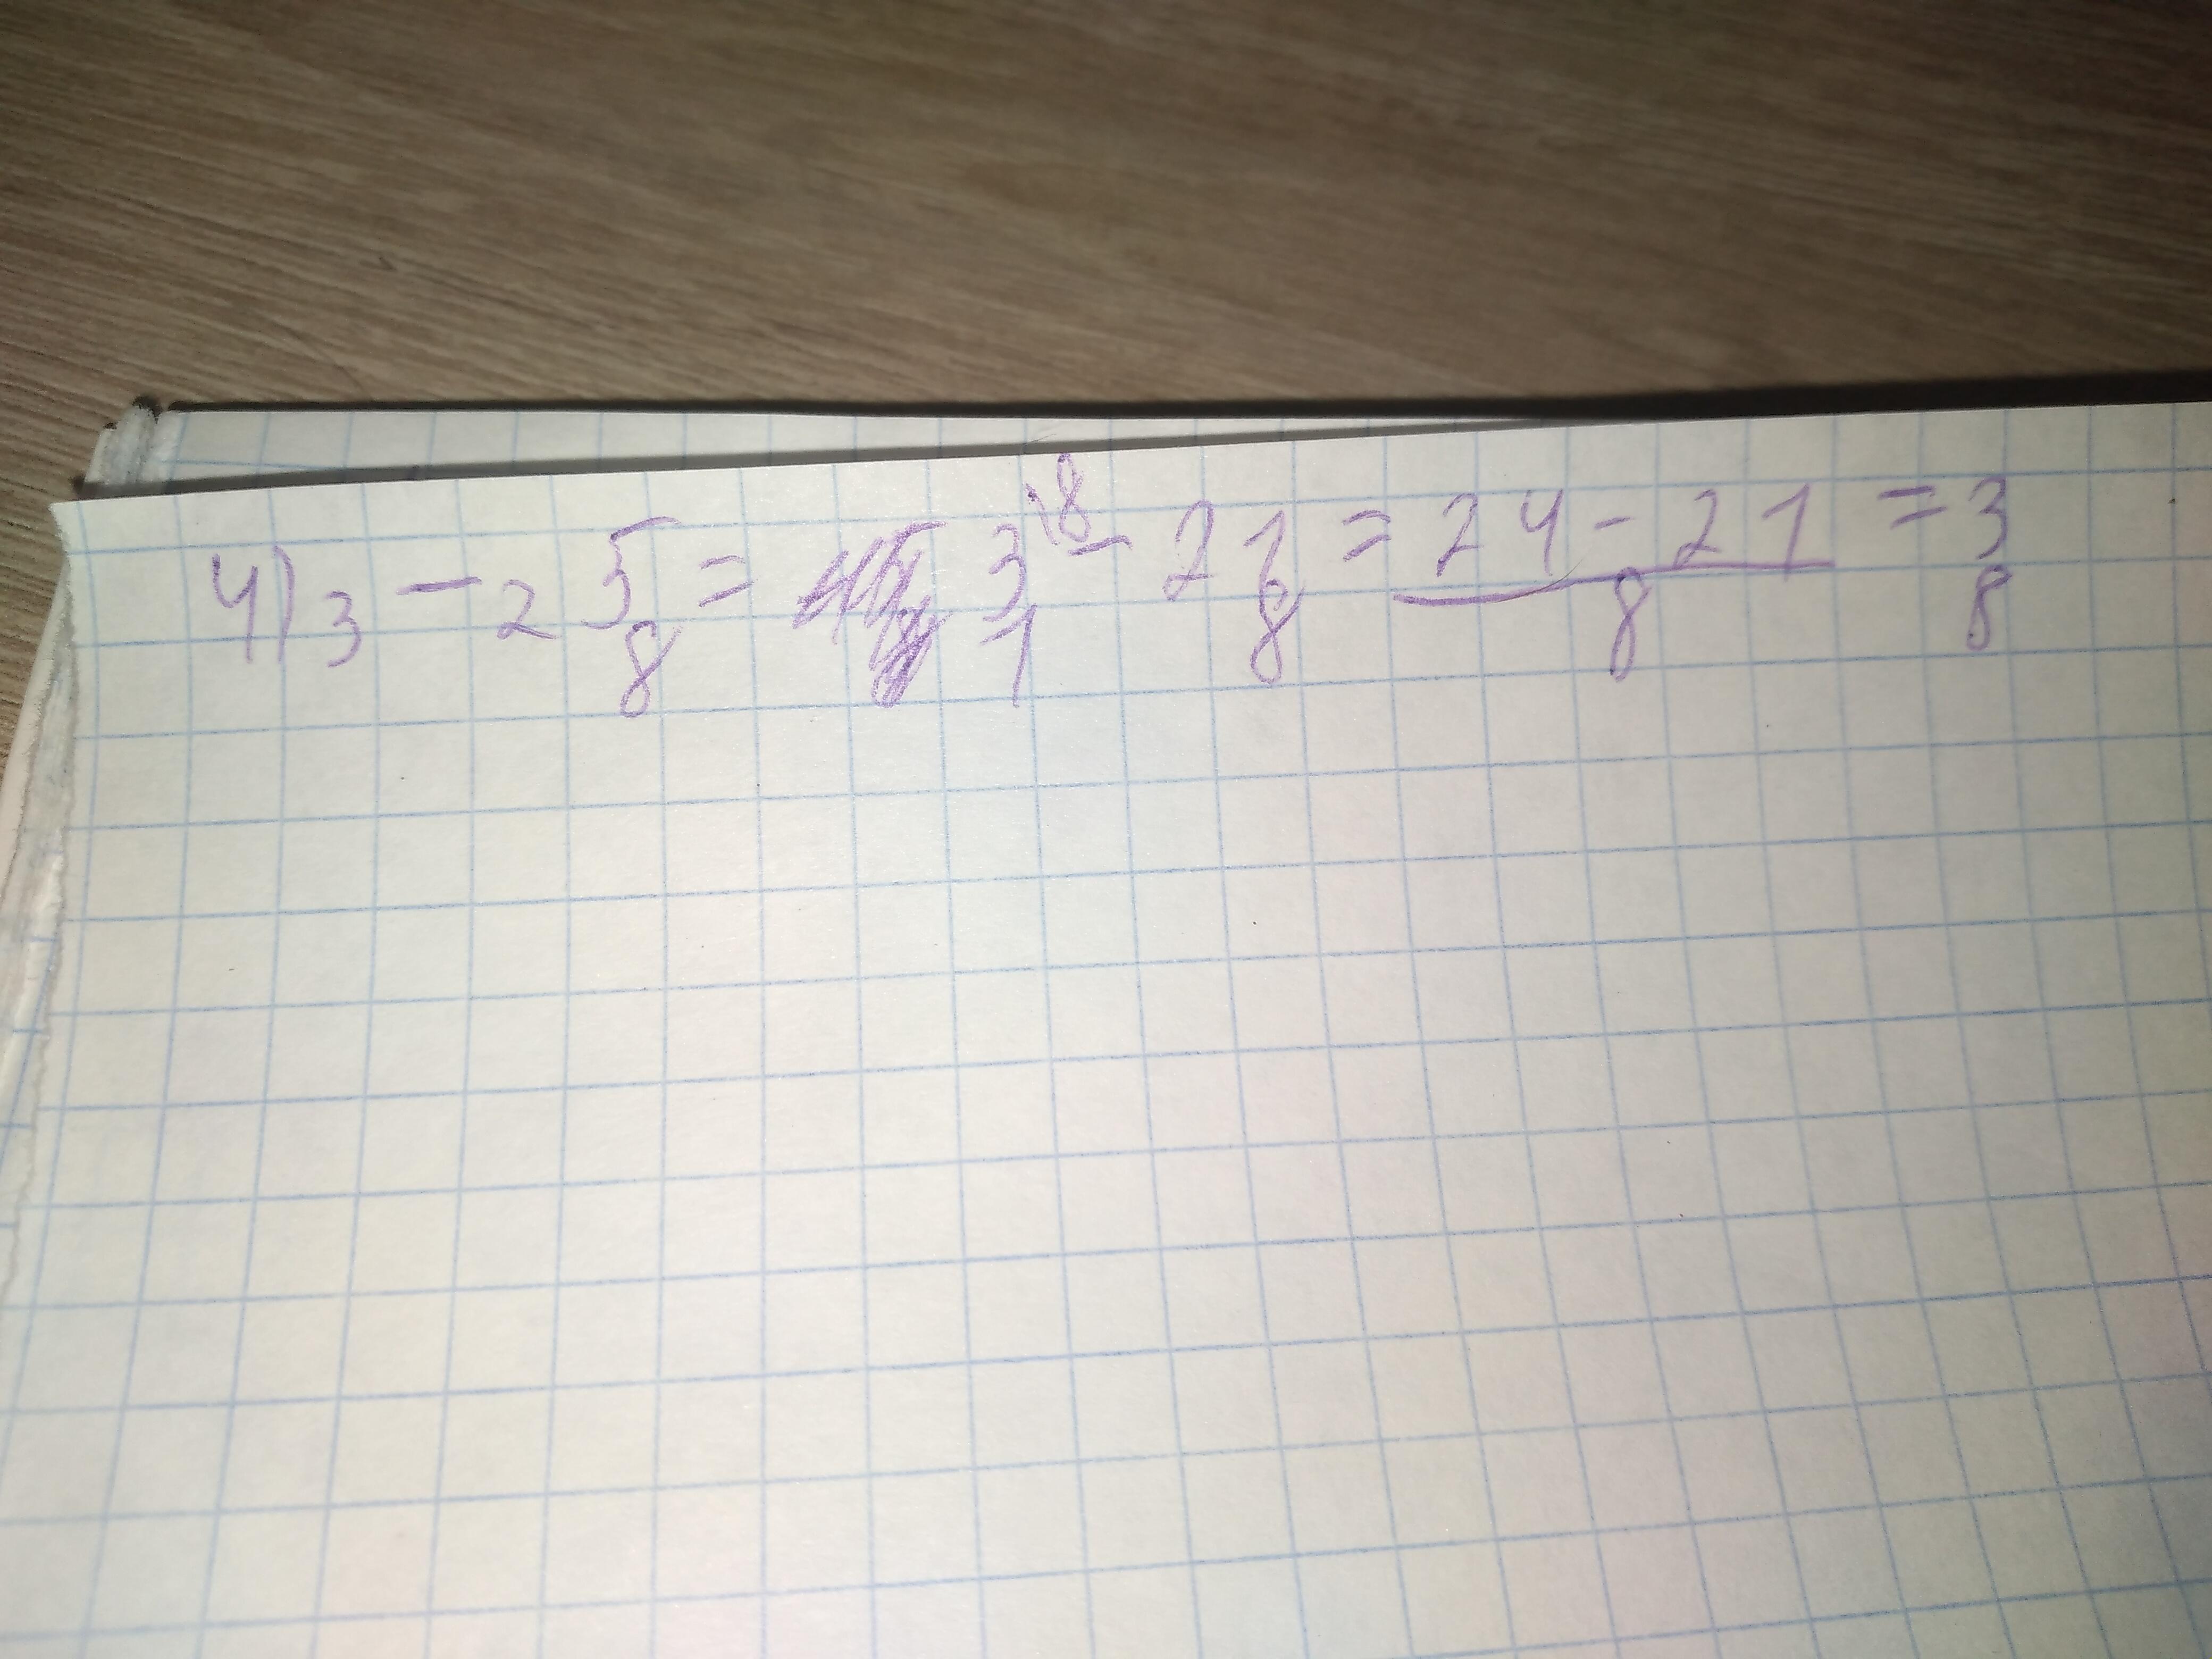 4) 3 - 2 5/8 = 3/1 \8 - 21/8 = 24 - 21/8 = 3/8